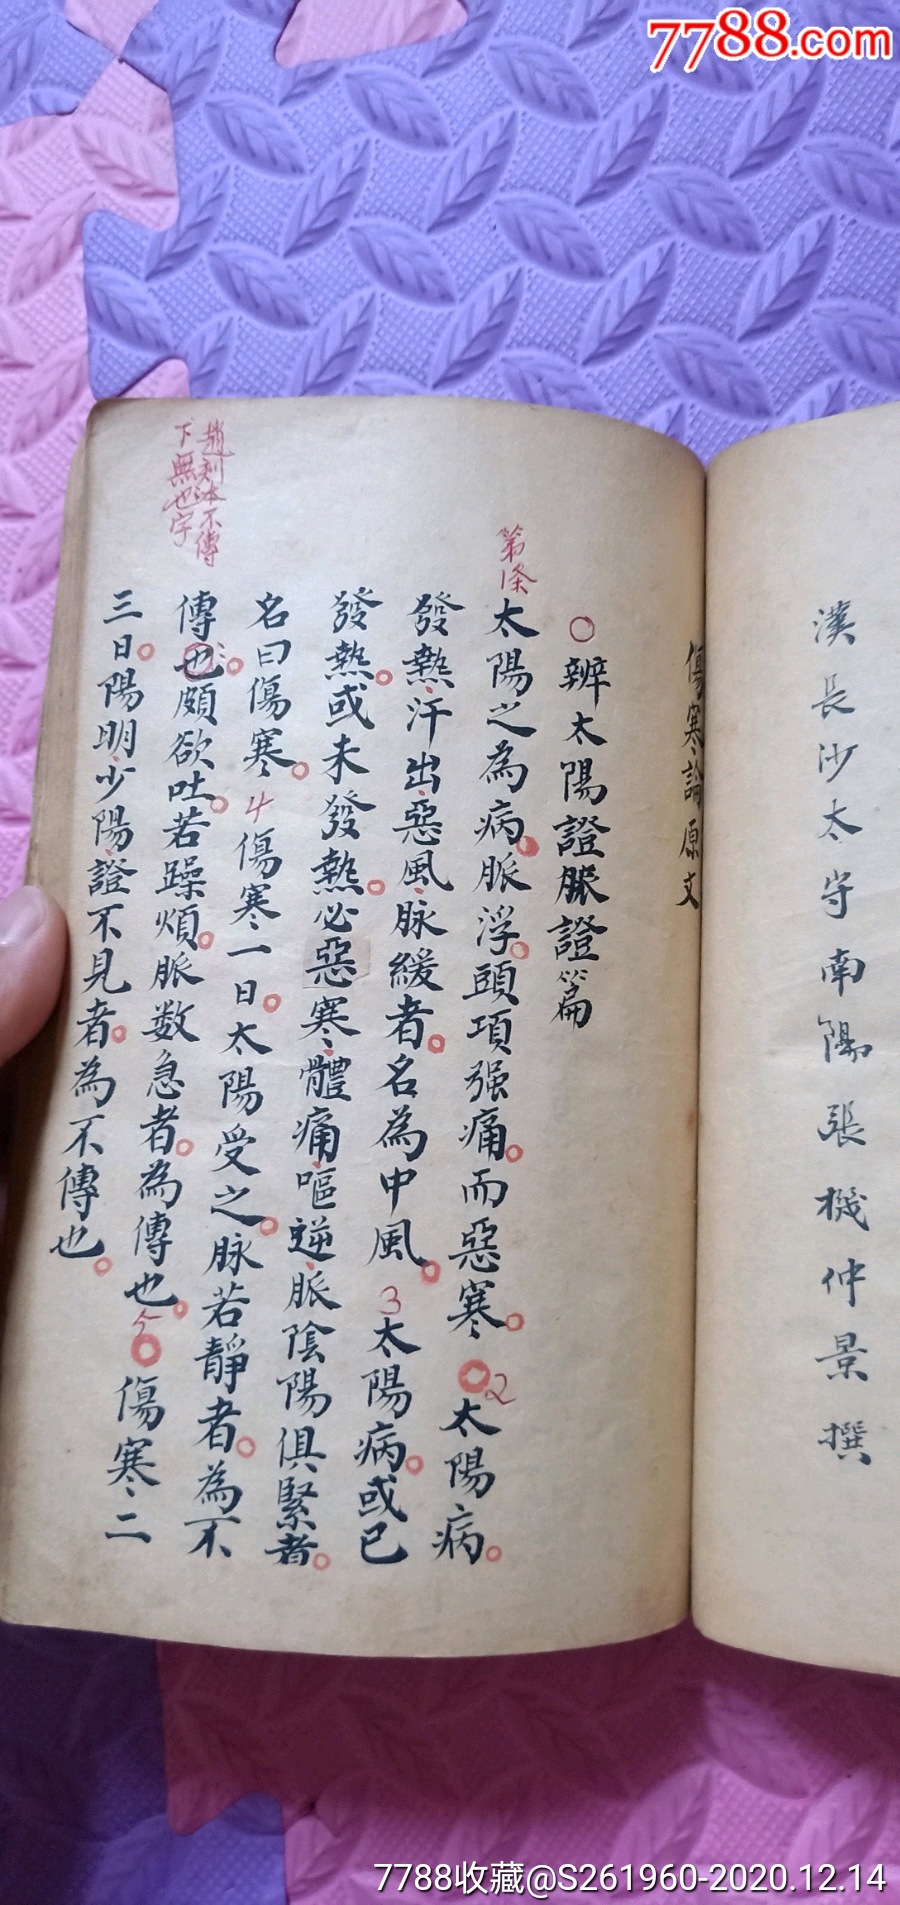 7788.com
漢長沙太守南陽張機仲景撰
傷寒論原文
○辨太陽證脈證篇
第1条
太陽之為病。脈浮。頭項强痛。而惡寒。○2太陽病。
發熱、汗出、惡風、脉緩者。名為中風。3太陽病。或已
發熱。或未發熱。必惡寒、體痛、嘔逆、脈陰陽俱緊者。
名曰傷寒。4傷寒一日。太陽受之。脉若靜者。為不
傳也。頗欲吐。若躁煩。脈数急者。為傳也。5○傷寒二
三日。陽明、少陽、證不見者。為不傳也。
趙刻本不傳
下無也字
7788收藏@S261960-2020.12.14